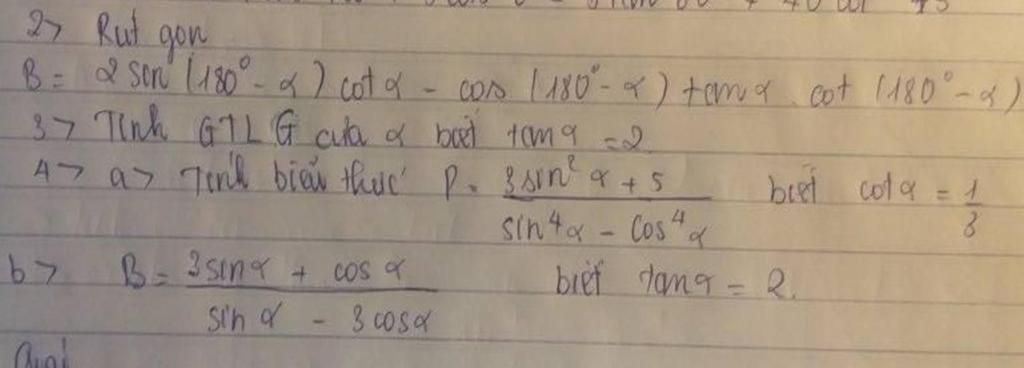 2> Rút gọn
B = 2 sin (180° - α) cot α - cos (180° - α) tan α . cot (180° - α)
3> Tính GTLG của α biết tan α = 2
4> a> Tính biểu thức P = \frac{3 sin² α + 5}{sin⁴ α - cos⁴ α} biết cot α = \frac{1}{3}
b> B = \frac{3 sin α + cos α}{sin α - 3 cos α} biết tan α = 2.